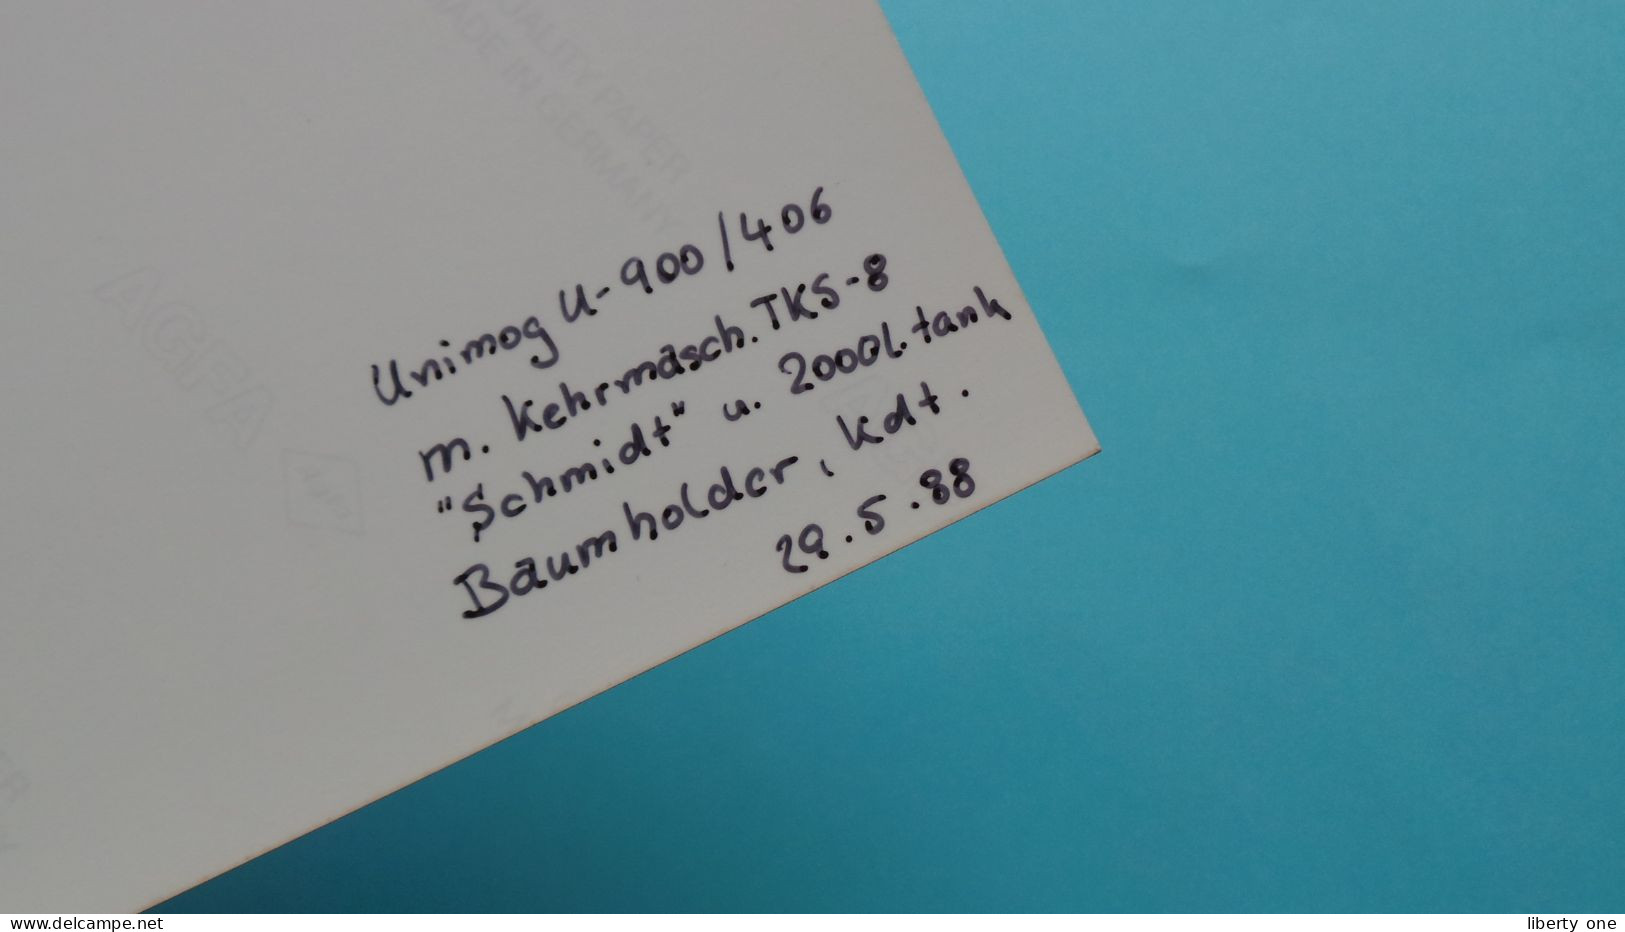 QUALITY PAPER
MADE IN GERMANY
AGFA
Unimog U-900/406
m. Kehrmasch. TKS-8
"Schmidt" u. 2000l. tank
Baumholder, Kdt.
29.5.88
delcampe.net
liberty_one